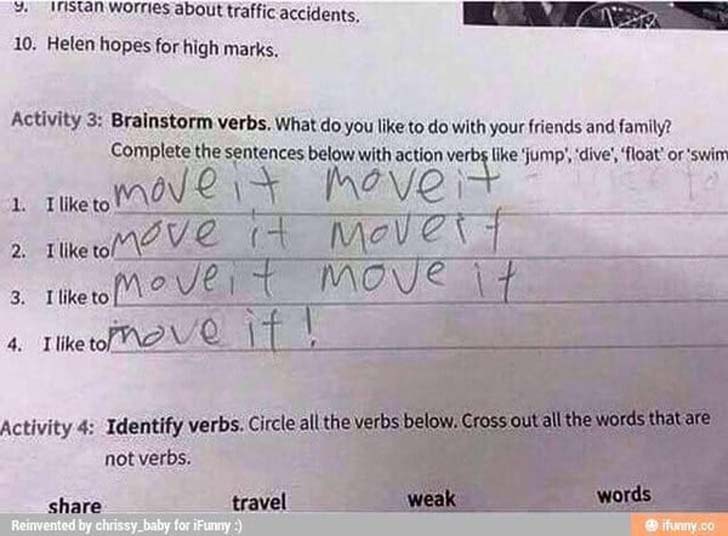 9. Tristan worries about traffic accidents.
10. Helen hopes for high marks.
Activity 3: Brainstorm verbs. What do you like to do with your friends and family?
Complete the sentences below with action verbs like 'jump', 'dive', 'float' or 'swim
1. I like to move it move it
2. I like to move it move it
3. I like to move it move it
4. I like to move it!
Activity 4: Identify verbs. Circle all the verbs below. Cross out all the words that are
not verbs.
share travel weak words
Reinvented by chrissy_baby for iFunny :) ifunny.co